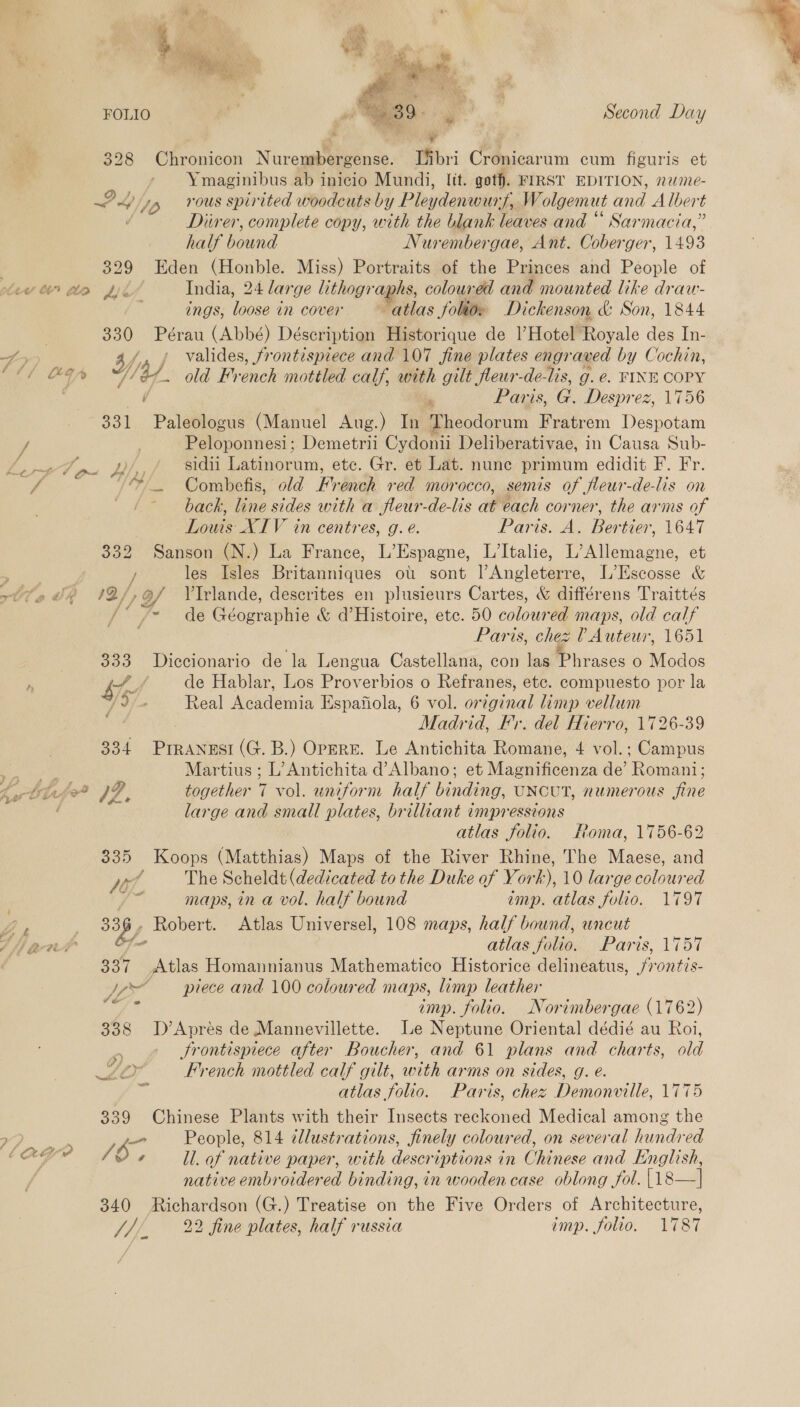 FOLIO 39 Second Day
328 Chronicon Nurembergense. Libri Cronicarum cum figuris et
Ymaginibus ab inicio Mundi, lit. goth. FIRST EDITION, nume-
rous spirited woodcuts by Pleydenwurf, Wolgemut and Albert
Dürer, complete copy, with the blank leaves and “Sarmacia,”
half bound Nurembergae, Ant. Coberger, 1493
329 Eden (Honble. Miss) Portraits of the Princes and People of
India, 24 large lithographs, coloured and mounted like draw-
ings, loose in cover atlas folio. Dickenson & Son, 1844
330 Pérau (Abbé) Déscription Historique de l’Hotel Royale des In-
valides, frontispiece and 107 fine plates engraved by Cochin,
old French mottled calf, with gilt fleur-de-lis, g. e. FINE COPY
Paris, G. Desprez, 1756
331 Paleologus (Manuel Aug.) In Theodorum Fratrem Despotam
Peloponnesi; Demetrii Cydonii Deliberativae, in Causa Sub-
sidii Latinorum, etc. Gr. et Lat. nunc primum edidit F. Fr.
Combefis, old French red morocco, semis of fleur-de-lis on
back, line sides with a fleur-de-lis at each corner, the arms of
Louis XIV in centres, g. e. Paris. A. Bertier, 1647
332 Sanson (N.) La France, L’Espagne, L’Italie, L’Allemagne, et
les Isles Britanniques où sont l’Angleterre, L’Escosse &
l’Irlande, descrites en plusieurs Cartes, & différens Traittés
de Géographie & d’Histoire, etc. 50 coloured maps, old calf
Paris, chez l’Auteur, 1651
333 Diccionario de la Lengua Castellana, con las Phrases o Modos
de Hablar, Los Proverbios o Refranes, etc. compuesto por la
Real Academia Española, 6 vol. original limp vellum
Madrid, Fr. del Hierro, 1726-39
334 PIRANESI (G. B.) OPERE. Le Antichita Romane, 4 vol.; Campus
Martius; L’Antichita d’Albano; et Magnificenza de’ Romani;
together 7 vol. uniform half binding, UNCUT, numerous fine
large and small plates, brilliant impressions
atlas folio. Roma, 1756-62
335 Koops (Matthias) Maps of the River Rhine, The Maese, and
The Scheldt (dedicated to the Duke of York), 10 large coloured
maps, in a vol. half bound imp. atlas folio. 1797
336 Robert. Atlas Universel, 108 maps, half bound, uncut
atlas folio. Paris, 1757
337 Atlas Homannianus Mathematico Historice delineatus, frontis-
piece and 100 coloured maps, limp leather
imp. folio. Norimbergae (1762)
338 D’Après de Mannevillette. Le Neptune Oriental dédié au Roi,
frontispiece after Boucher, and 61 plans and charts, old
French mottled calf gilt, with arms on sides, g. e.
atlas folio. Paris, chez Demonville, 1775
339 Chinese Plants with their Insects reckoned Medical among the
People, 814 illustrations, finely coloured, on several hundred
ll. of native paper, with descriptions in Chinese and English,
native embroidered binding, in wooden case oblong fol. [18—]
340 Richardson (G.) Treatise on the Five Orders of Architecture,
22 fine plates, half russia imp. folio. 1787